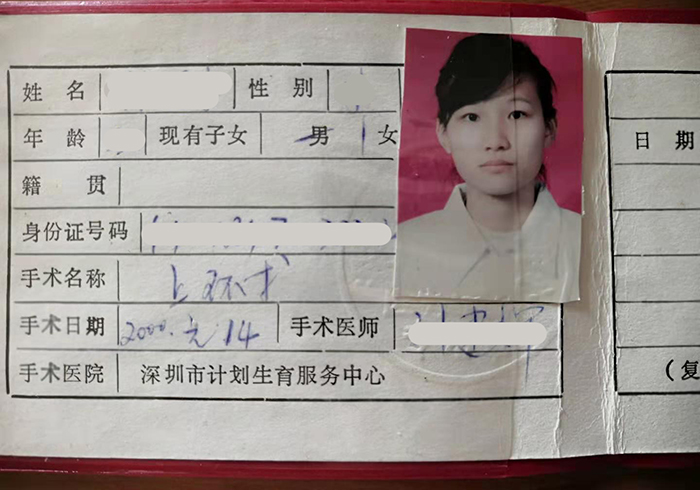 姓 名 性 别
年 龄 现有子女 男 1 女
籍 贯
身份证号码
手术名称 上环术
手术日期 2000.元14 手术医师
手术医院 深圳市计划生育服务中心
日 期
(复